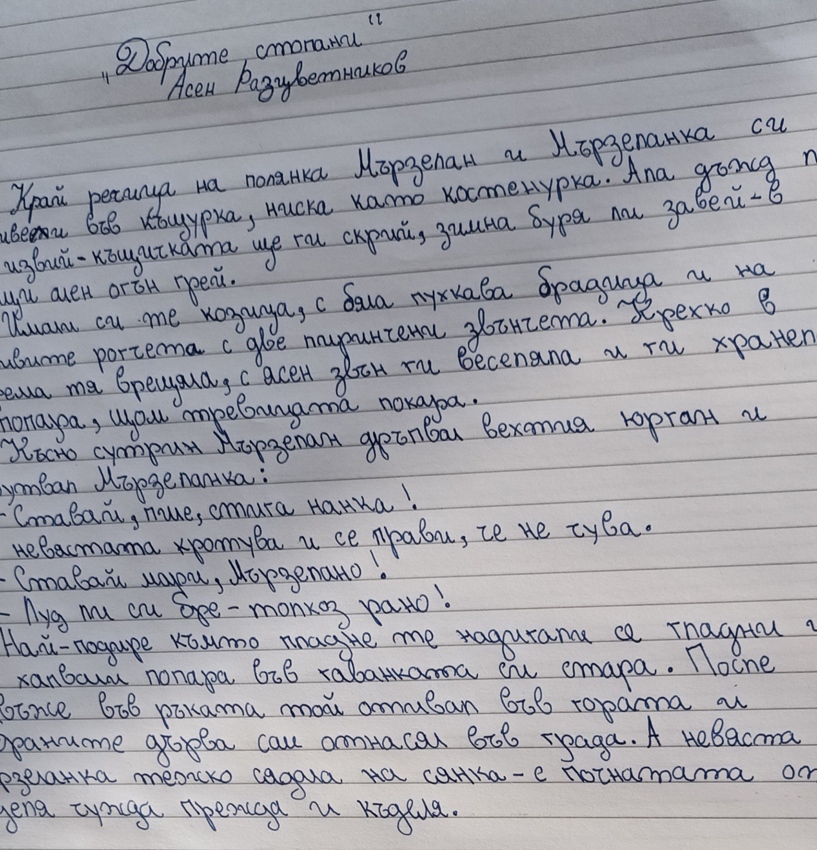 „Добрите стопани“
Асен Разцветников
Край рекица на полянка Мързелан и Мързеланка си
във къщурка, ниска като костенурка. Ала дъжд
извий - къщичката ще ги скрий, зимна буря ли завей - в
огън грей.
Имали си те козица, с бяла пухкава брадица и на
рогчета с две пиринчени звънчета. Крехко в
тя врещяла, с ясен звън ги веселяла и ги хранел
попара, щом тревицата покара.
Късно сутрин Мързелан дръпвал вехтия юрган и
Мързеланка:
- Ставай, пиле, стига нанка!
невястата кротува и се прави, че не чува.
- Ставай мари, Мързелано!
- Луд ли си бре - толкоз рано!
Най-подире към пладне те надигали се гладни
хапвали попара във гаванката си стара. После
във ръката той отивал във гората и
дърва сам отнасял във града. А невяста
тежко сядала на сянка - е почнатата от
чужда прежда и къделя.